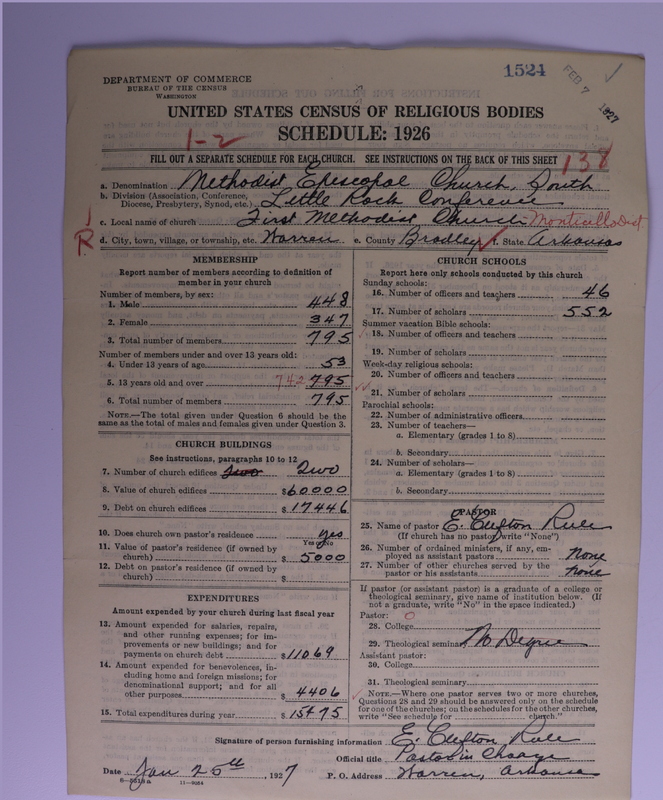 1524
FEB 7 1927
DEPARTMENT OF COMMERCE
BUREAU OF THE CENSUS
WASHINGTON
UNITED STATES CENSUS OF RELIGIOUS BODIES
SCHEDULE: 1926
1-2
FILL OUT A SEPARATE SCHEDULE FOR EACH CHURCH. SEE INSTRUCTIONS ON THE BACK OF THIS SHEET
138
a. Denomination Methodist Episcopal Church, South
b. Division (Association, Conference, Diocese, Presbytery, Synod, etc.) Little Rock Conference
c. Local name of church First Methodist Church - Monticello Dist
R
d. City, town, village, or township, etc. Warren e. County Bradley f. State Arkansas
MEMBERSHIP
Report number of members according to definition of
member in your church
Number of members, by sex:
1. Male 448
2. Female 347
3. Total number of members 795
Number of members under and over 13 years old:
4. Under 13 years of age 53
5. 13 years old and over 742 795
6. Total number of members 795
NOTE.—The total given under Question 6 should be the
same as the total of males and females given under Question 3.
CHURCH BUILDINGS
See instructions, paragraphs 10 to 12
7. Number of church edifices Two Two
8. Value of church edifices $60000
9. Debt on church edifices $17446
10. Does church own pastor's residence yes
Yes or No
11. Value of pastor's residence (if owned by
church) $5000
12. Debt on pastor's residence (if owned by
church) $
EXPENDITURES
Amount expended by your church during last fiscal year
13. Amount expended for salaries, repairs,
and other running expenses; for im-
provements or new buildings; and for
payments on church debt $11069
14. Amount expended for benevolences, in-
cluding home and foreign missions; for
denominational support; and for all
other purposes $4406
15. Total expenditures during year $15475
CHURCH SCHOOLS
Report here only schools conducted by this church
Sunday schools:
16. Number of officers and teachers 46
17. Number of scholars 552
Summer vacation Bible schools:
18. Number of officers and teachers
19. Number of scholars
Week-day religious schools:
20. Number of officers and teachers
21. Number of scholars
Parochial schools:
22. Number of administrative officers
23. Number of teachers—
a. Elementary (grades 1 to 8)
b. Secondary
24. Number of scholars—
a. Elementary (grades 1 to 8)
b. Secondary
PASTOR
25. Name of pastor E. Clifton Rule
(If church has no pastor, write "None")
26. Number of ordained ministers, if any, em-
ployed as assistant pastors None
27. Number of other churches served by the
pastor or his assistants None
If pastor (or assistant pastor) is a graduate of a college or
theological seminary, give name of institution below. (If
not a graduate, write "No" in the space indicated.)
Pastor:
28. College
29. Theological seminary No Degree
Assistant pastor:
30. College
31. Theological seminary
NOTE.—Where one pastor serves two or more churches,
Questions 28 and 29 should be answered only on the schedule
for one of the churches; on the schedules for the other churches,
write "See schedule for church."
Signature of person furnishing information E. Clifton Rule
Official title Pastor in Charge
Date Jan 25th, 1927 P. O. Address Warren, Arkansas
11—9054